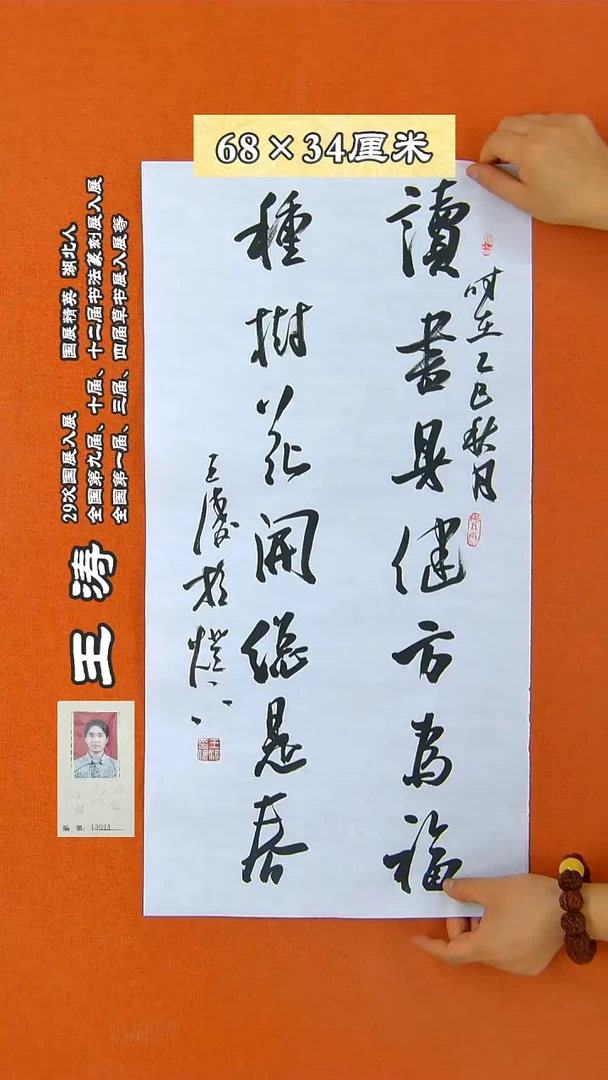 68×34厘米
时在乙巳秋月
讀書身健方為福
種樹花開總是春
王濤於燈下
王涛
29次国展入展 国展精英 湖北人
全国第九届、十届、十二届书法篆刻展入展
全国第一届、三届、四届草书展入展等